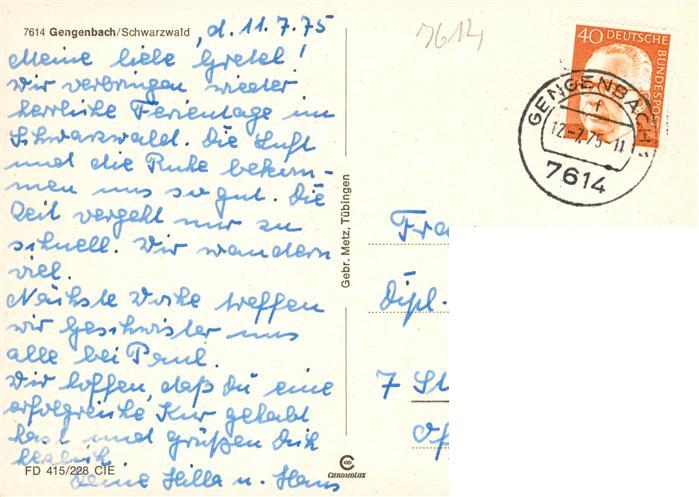 7614 Gengenbach/Schwarzwald , d. 11.7.75
Meine liebe Gretel!
Wir verbringen wieder
herrliche Ferientage im
Schwarzwald. Die Luft
und die Ruhe bekom-
men uns so gut. Die
Zeit vergeht nur zu
schnell. Wir wandern
viel.
Nächste Woche treffen
wir Geschwister uns
alle bei Paul.
Wir hoffen, daß Du eine
erfolgreiche Kur gehabt
hast und grüßen Dich
herzlich
Deine Hilla u. Hans
FD 415/228 CIE
Gebr. Metz, Tübingen
CHROMOLUX
7614
40 DEUTSCHE
BUNDESPOST
GENGENBACH 1
f
12.-7.75-11
7614
Fra
Dipl.
7 St